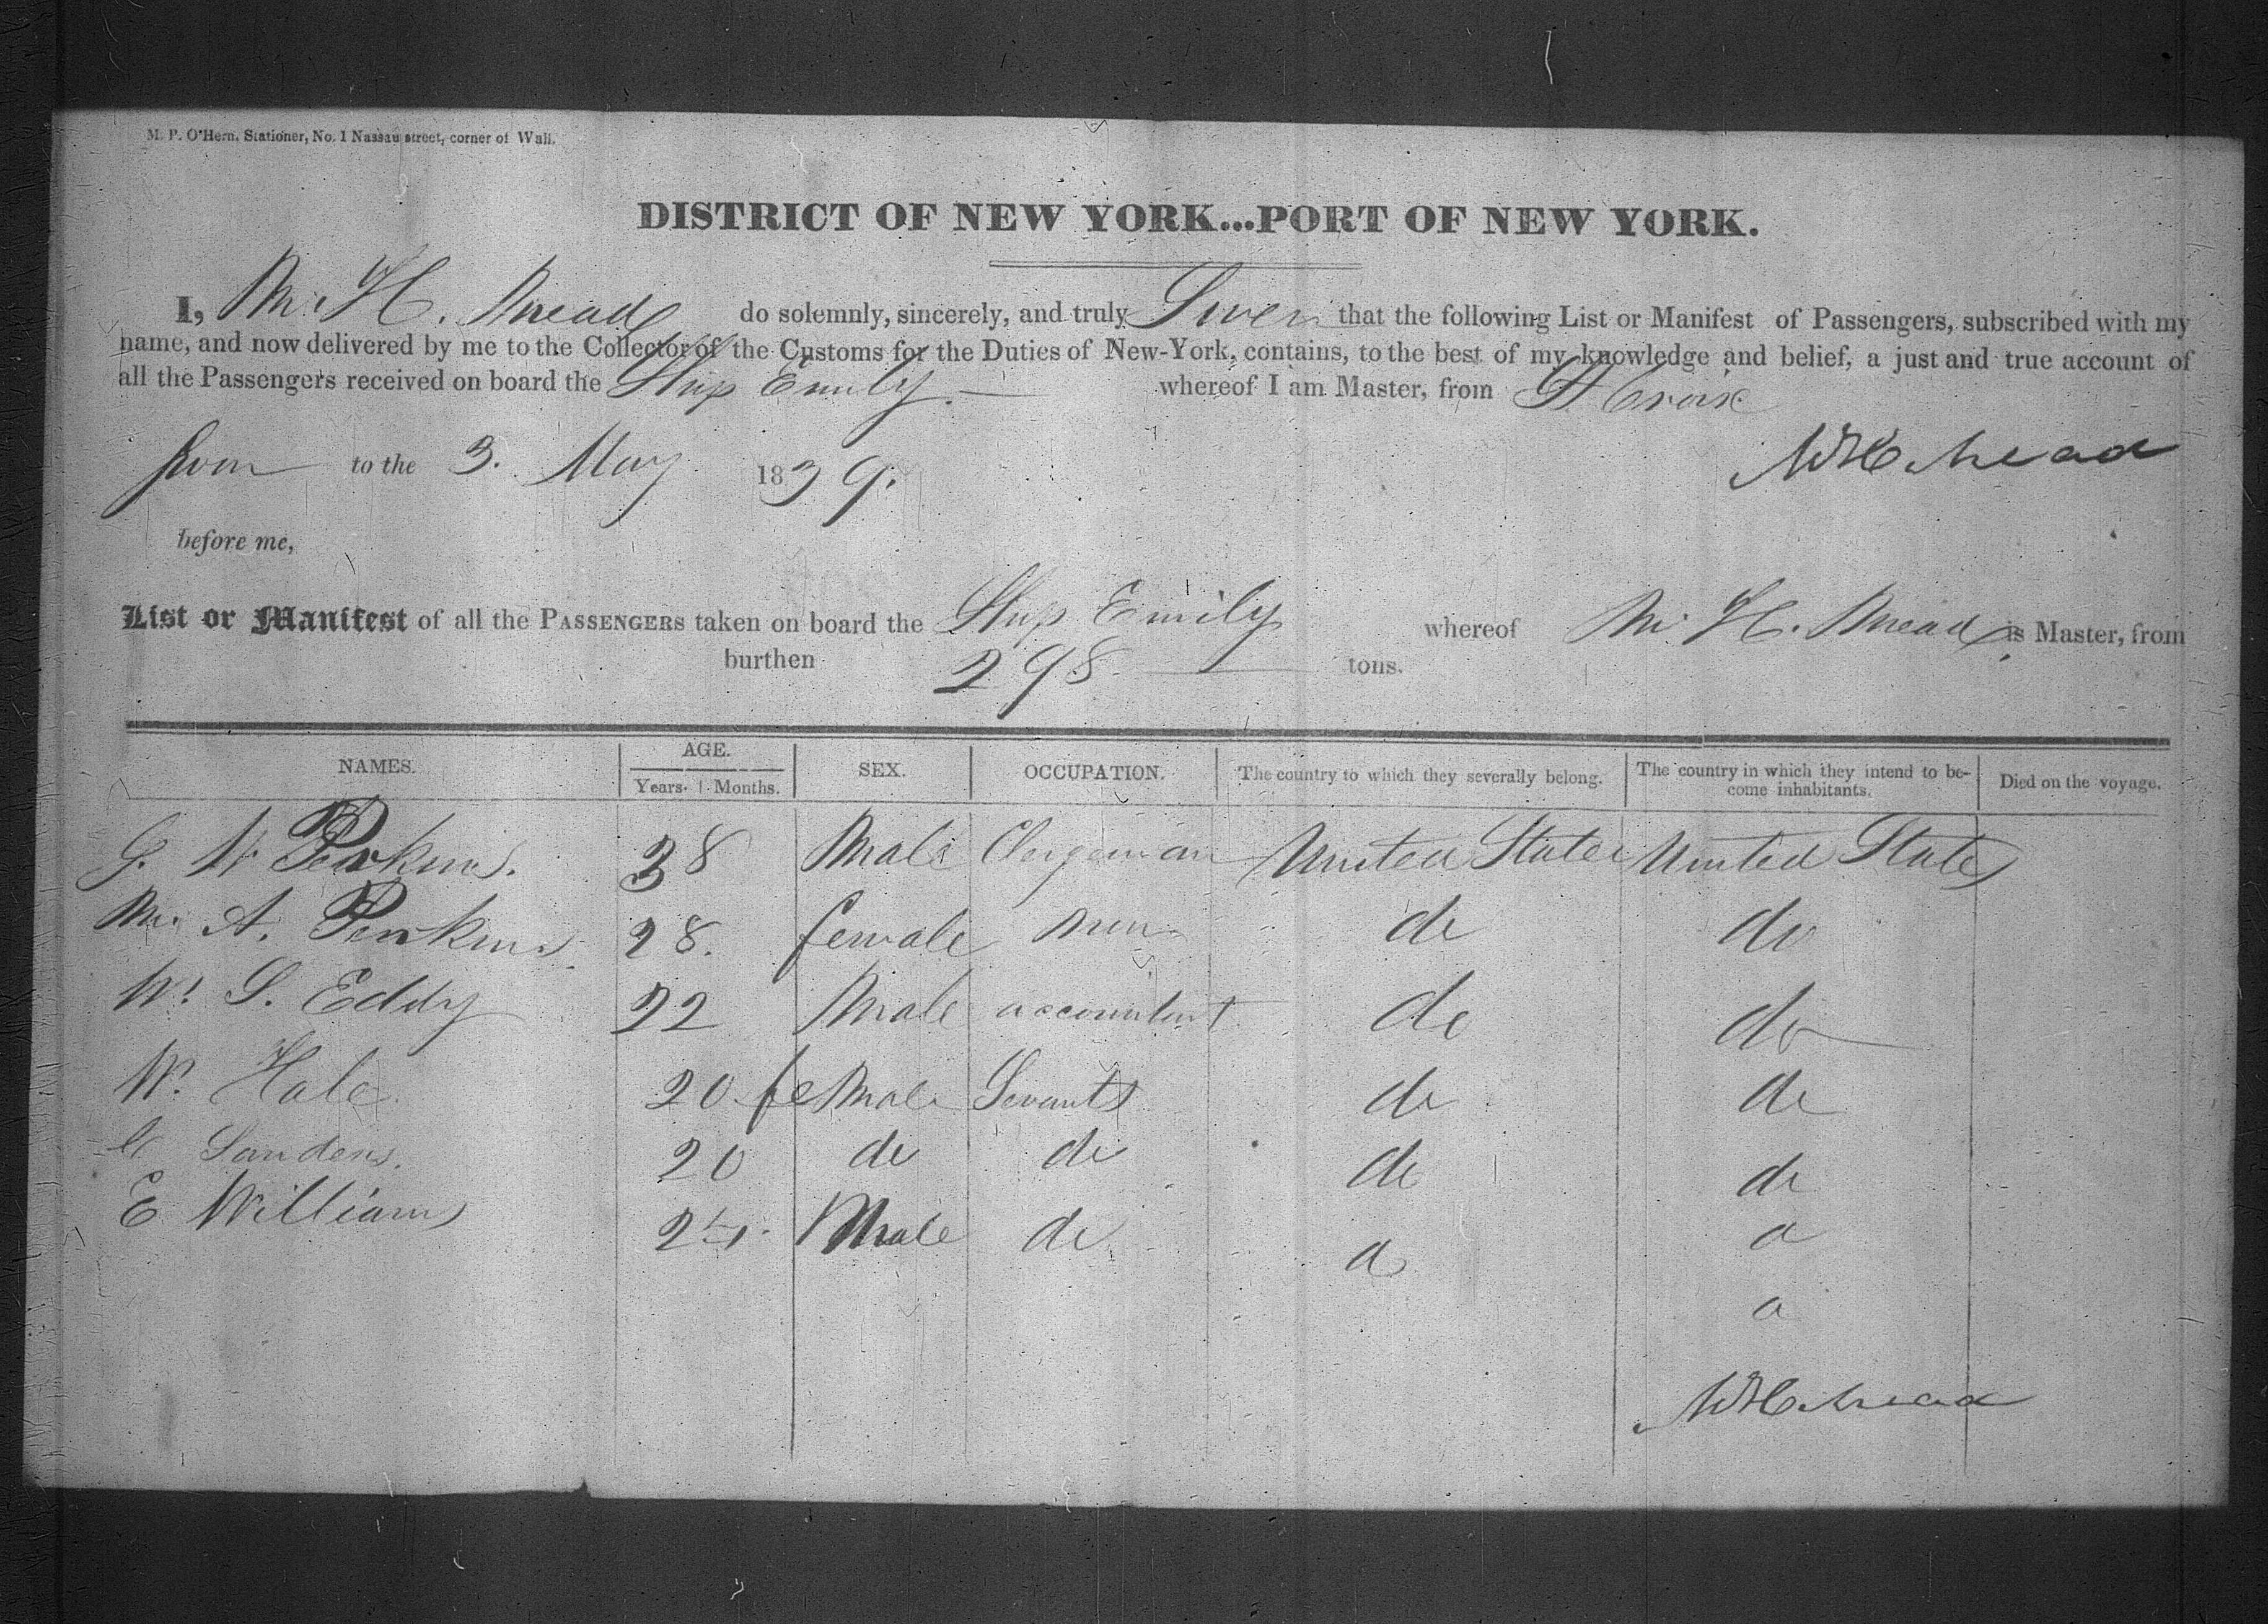 M. P. O'Hern, Stationer, No. 1 Nassau street, corner of Wall.
DISTRICT OF NEW YORK...PORT OF NEW YORK.
I, M. H. Mead do solemnly, sincerely, and truly Swear that the following List or Manifest of Passengers, subscribed with my
name, and now delivered by me to the Collector of the Customs for the Duties of New-York, contains, to the best of my knowledge and belief, a just and true account of
all the Passengers received on board the Ship Emily. whereof I am Master, from St Croix
to the 3. May 1839. Mead
before me,
List or Manifest of all the PASSENGERS taken on board the Ship Emily whereof M. H. Mead is Master, from
burthen 298 tons.
NAMES. AGE. SEX. OCCUPATION. The country to which they severally belong. The country in which they intend to be- Died on the voyage.
Years. Months. come inhabitants.
G. W Perkins. 38 Male Clergeman United States United States
A. Perkins 28. female do do
W. S. Eddy 22 Male accountent do do
W. Hale 20 feMale Servants do do
Sanders. 20 do do do do
E Williams 24. Male do d d
d
Mead